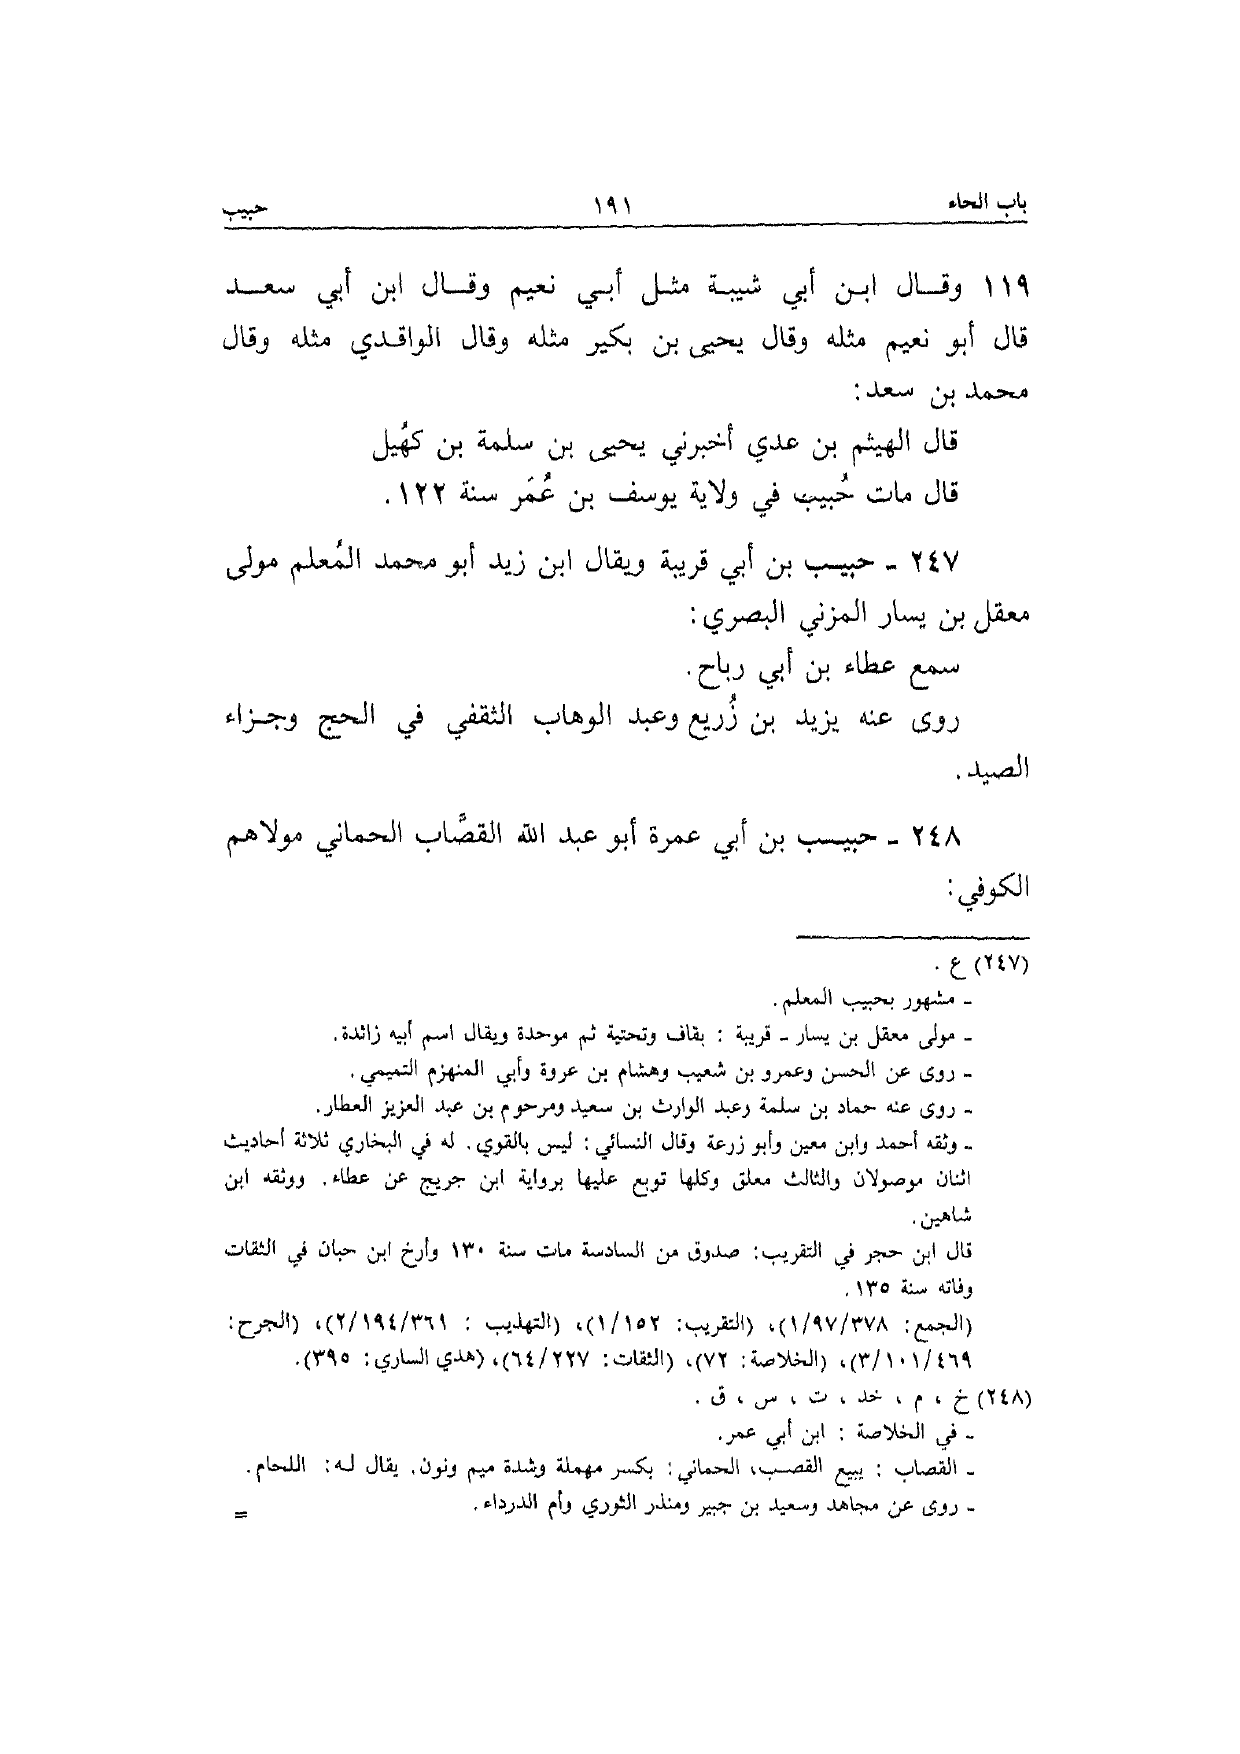 باب الحاء ١٩١ حبيب
١١٩ وقال ابن أبي شيبة مثل أبي نعيم وقال ابن أبي سعد
قال أبو نعيم مثله وقال يحيى بن بكير مثله وقال الواقدي مثله وقال
محمد بن سعد:
قال الهيثم بن عدي أخبرني يحيى بن سلمة بن كهُيل
قال مات حُبيب في ولاية يوسف بن عُمَر سنة ١٢٢.
٢٤٧ ـ حبيب بن أبي قريبة ويقال ابن زيد أبو محمد المُعلم مولى
معقل بن يسار المزني البصري:
سمع عطاء بن أبي رباح.
روى عنه يزيد بن زُريع وعبد الوهاب الثقفي في الحج وجزاء
الصيد.
٢٤٨ ـ حبيب بن أبي عمرة أبو عبد الله القصَّاب الحماني مولاهم
الكوفي:
(٢٤٧) ع .
ـ مشهور بحبيب المعلم.
ـ مولى معقل بن يسار ـ قريبة : بقاف وتحتية ثم موحدة ويقال اسم أبيه زائدة.
ـ روى عن الحسن وعمرو بن شعيب وهشام بن عروة وأبي المنهزم التميمي.
ـ روى عنه حماد بن سلمة وعبد الوارث بن سعيد ومرحوم بن عبد العزيز العطار.
ـ وثقه أحمد وابن معين وأبو زرعة وقال النسائي: ليس بالقوي. له في البخاري ثلاثة أحاديث
اثنان موصولان والثالث معلق وكلها توبع عليها برواية ابن جريج عن عطاء. ووثقه ابن
شاهين.
قال ابن حجر في التقريب: صدوق من السادسة مات سنة ١٣٠ وأرخ ابن حبان في الثقات
وفاته سنة ١٣٥.
(الجمع: ١/٩٧/٣٧٨)، (التقريب: ١/١٥٢)، (التهذيب : ٢/١٩٤/٣٦١)، (الجرح:
٣/١٠١/٤٦٩)، (الخلاصة: ٧٢)، (الثقات: ٦٤/٢٢٧)، (هدي الساري: ٣٩٥).
(٢٤٨) خ ، م ، خد ، ت ، س ، ق .
ـ في الخلاصة : ابن أبي عمر.
ـ القصاب : يبيع القصب، الحماني: بكسر مهملة وشدة ميم ونون. يقال له: اللحام.
ـ روى عن مجاهد وسعيد بن جبير ومنذر الثوري وأم الدرداء. =